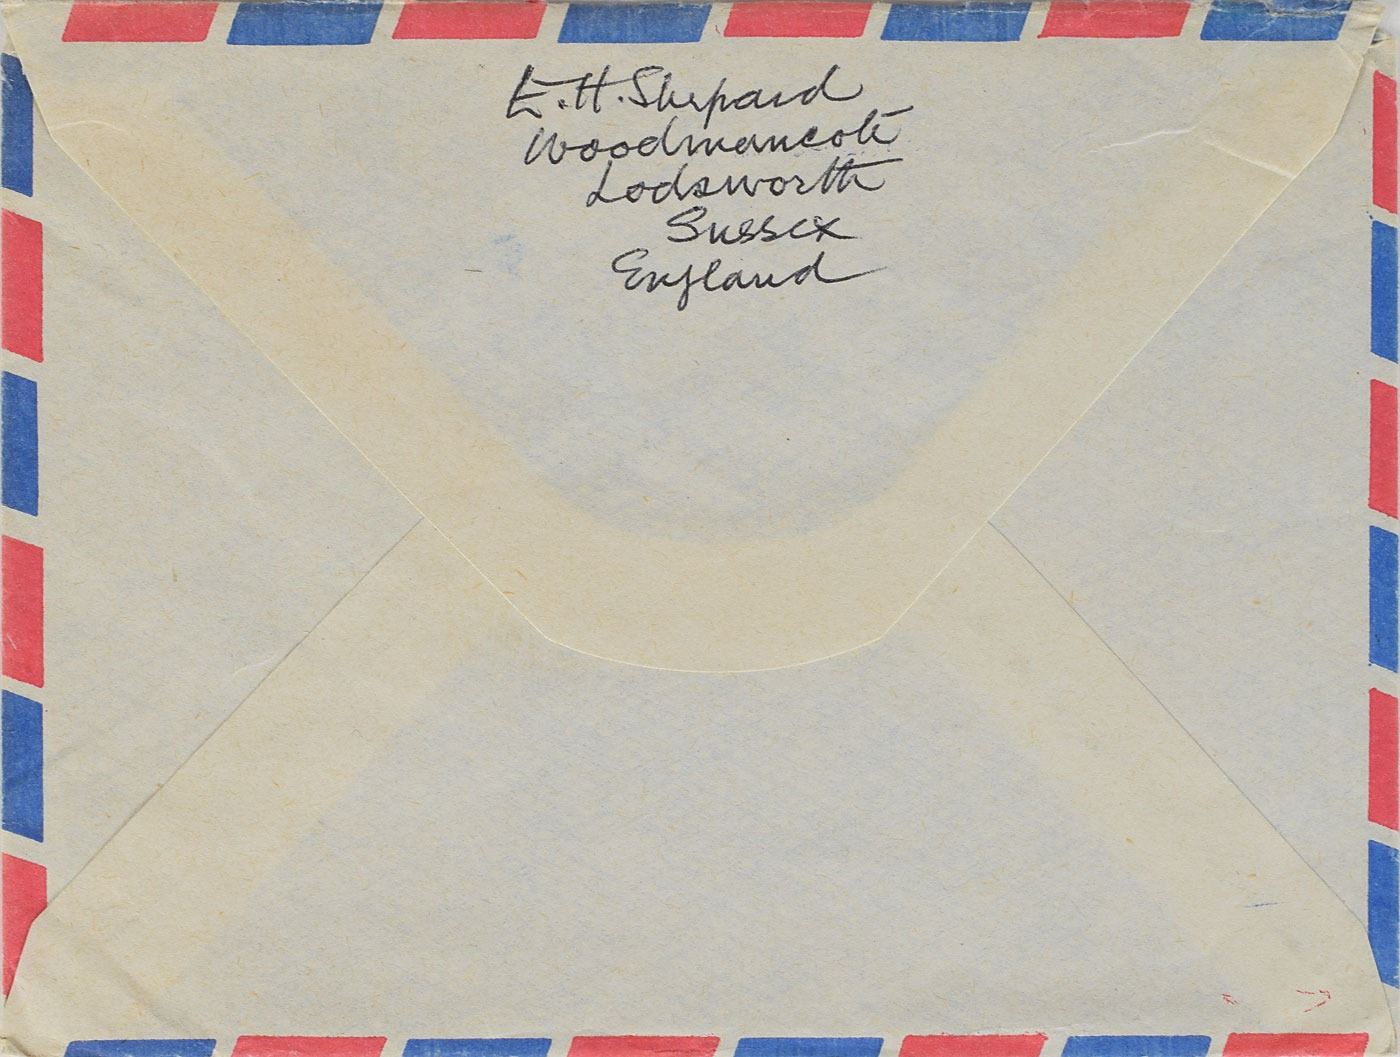 E. H. Shepard
Woodmancote
Lodsworth
Sussex
England